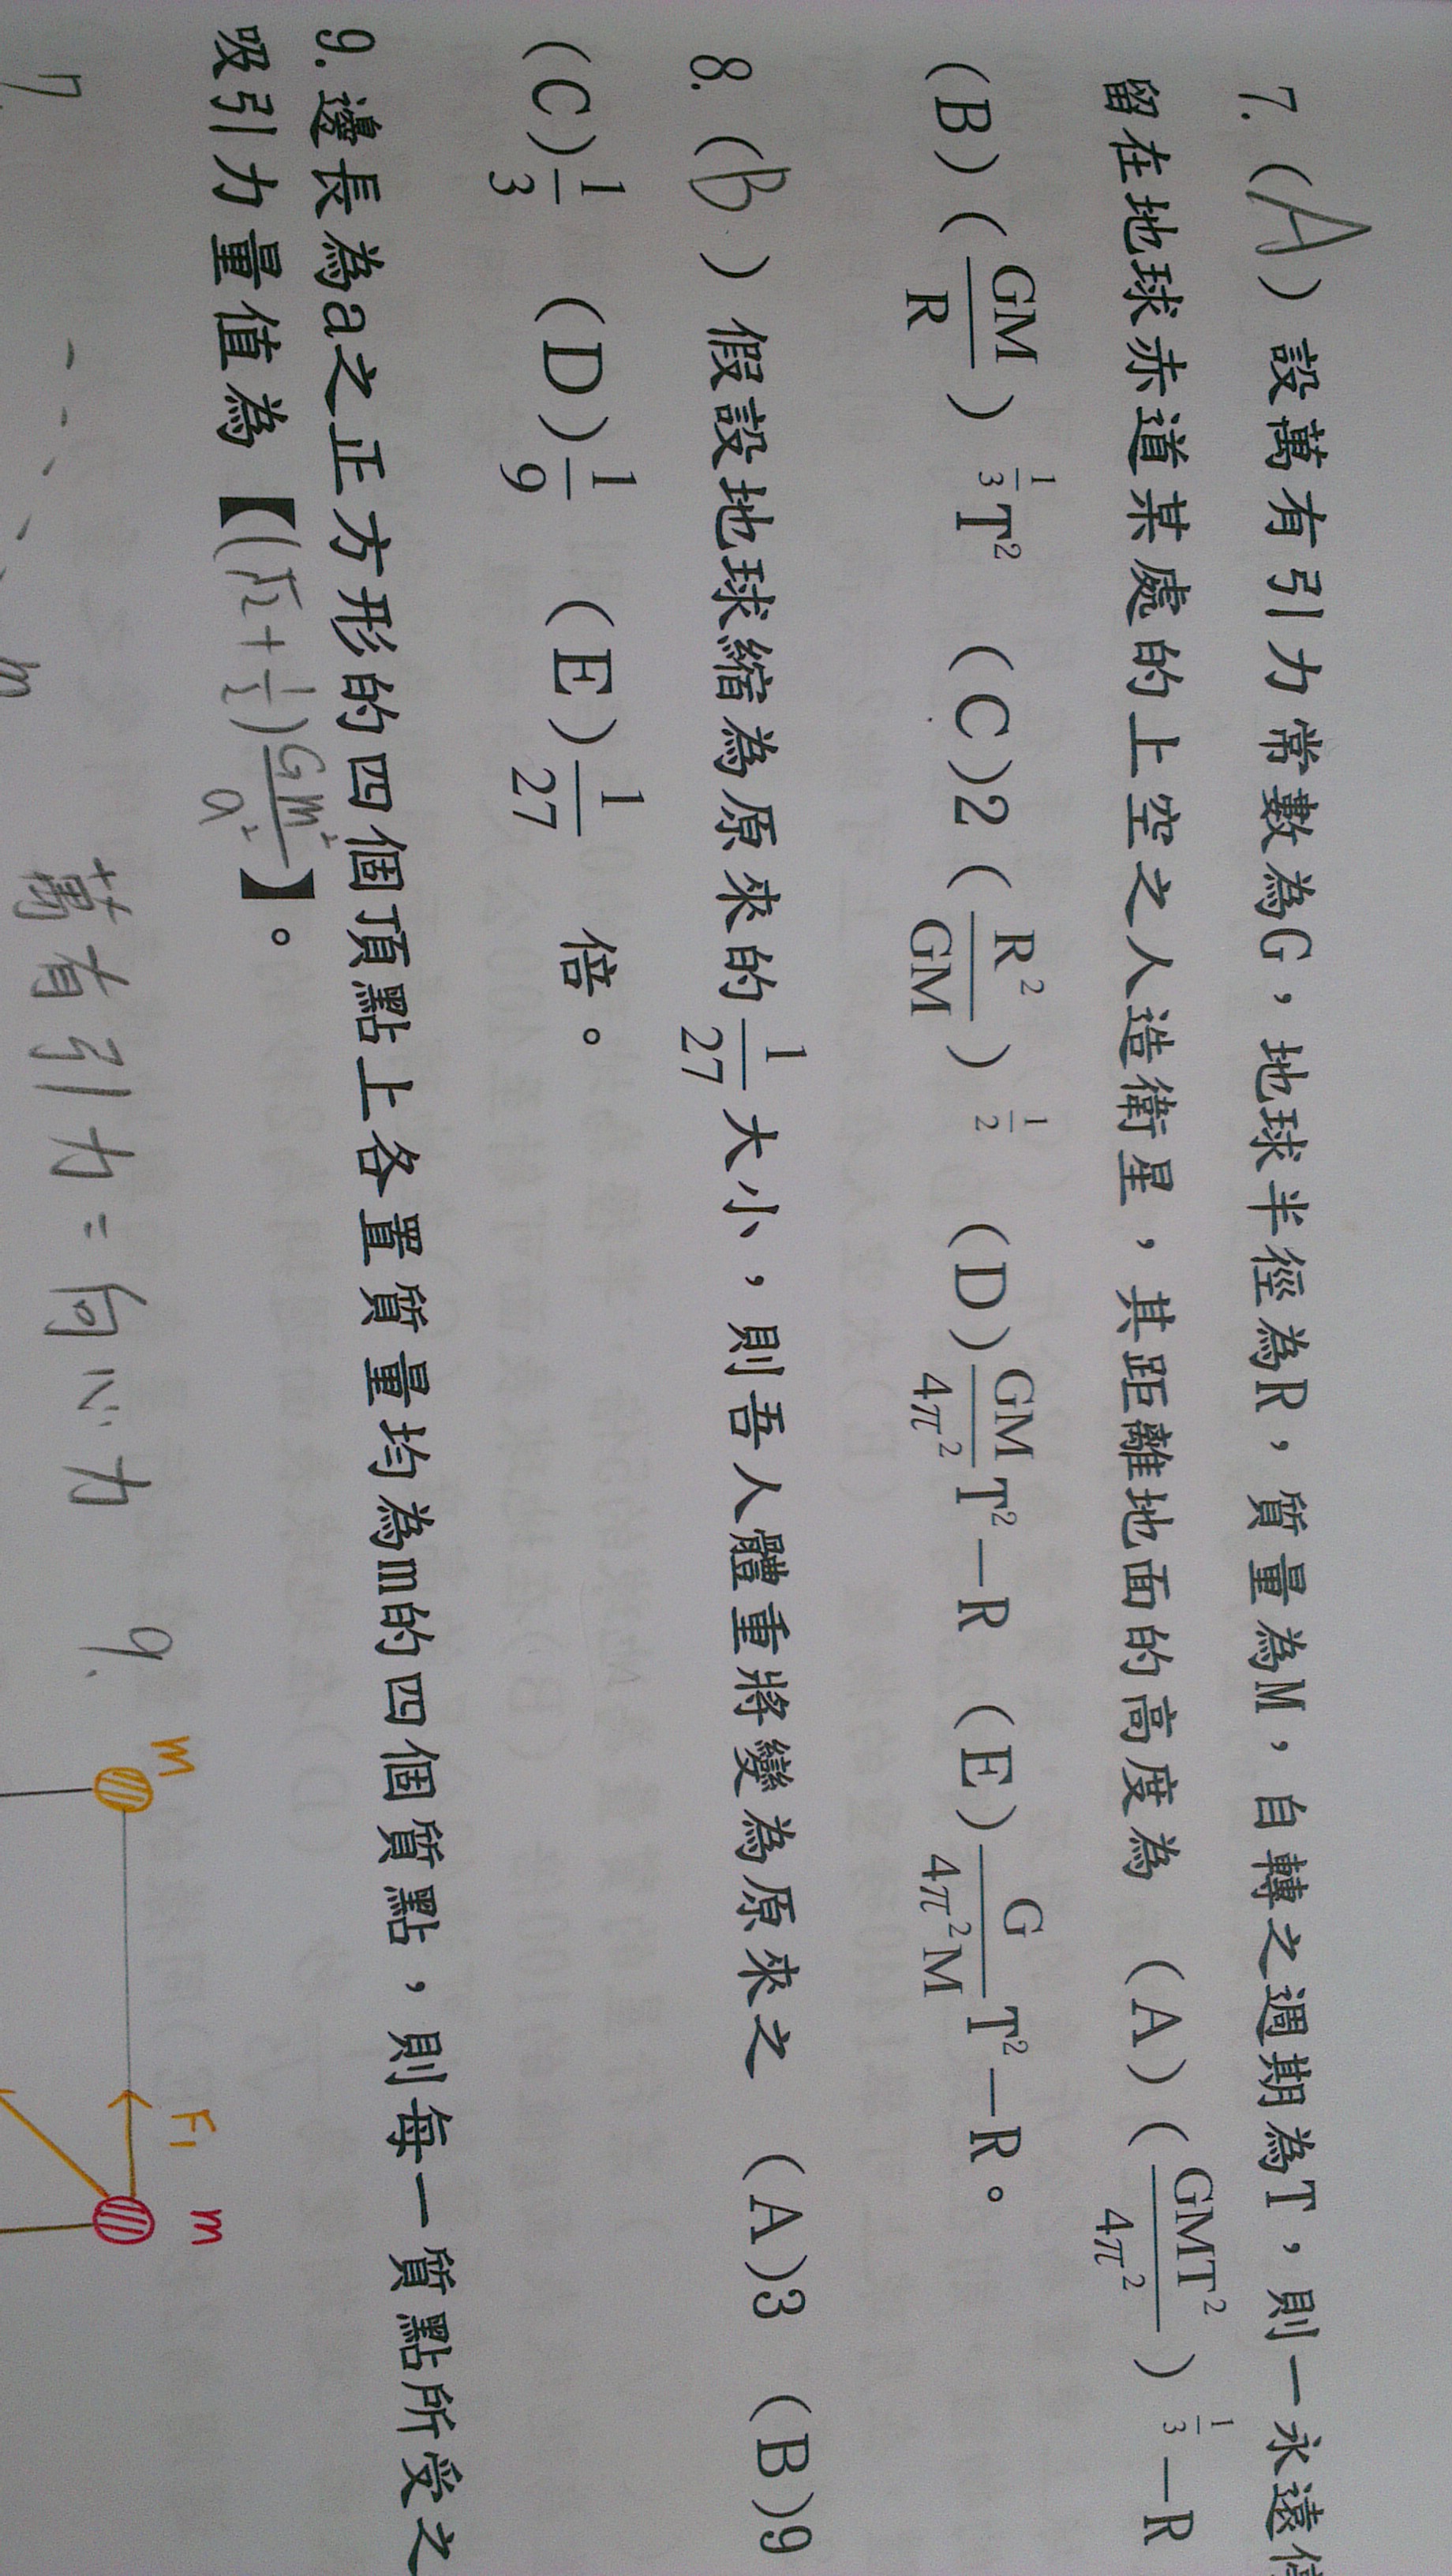 7. (A) 設萬有引力常數為G，地球半徑為R，質量為M，自轉之週期為T，則一永遠停
留在地球赤道某處的上空之人造衛星，其距離地面的高度為 (A)(GMT²/4π²)^(1/3)－R
(B)(GM/R)^(1/3)T² (C)2(R²/GM)^(1/2) (D)GM/4π² T²－R (E)G/4π²M T²－R。
8. (B) 假設地球縮為原來的1/27大小，則吾人體重將變為原來之 (A)3 (B)9
(C)1/3 (D)1/9 (E)1/27 倍。
9.邊長為a之正方形的四個頂點上各置質量均為m的四個質點，則每一質點所受之
吸引力量值為【(√2+1/2)Gm²/a²】。
7.
m
萬有引力=向心力
9.
m
F₁
m